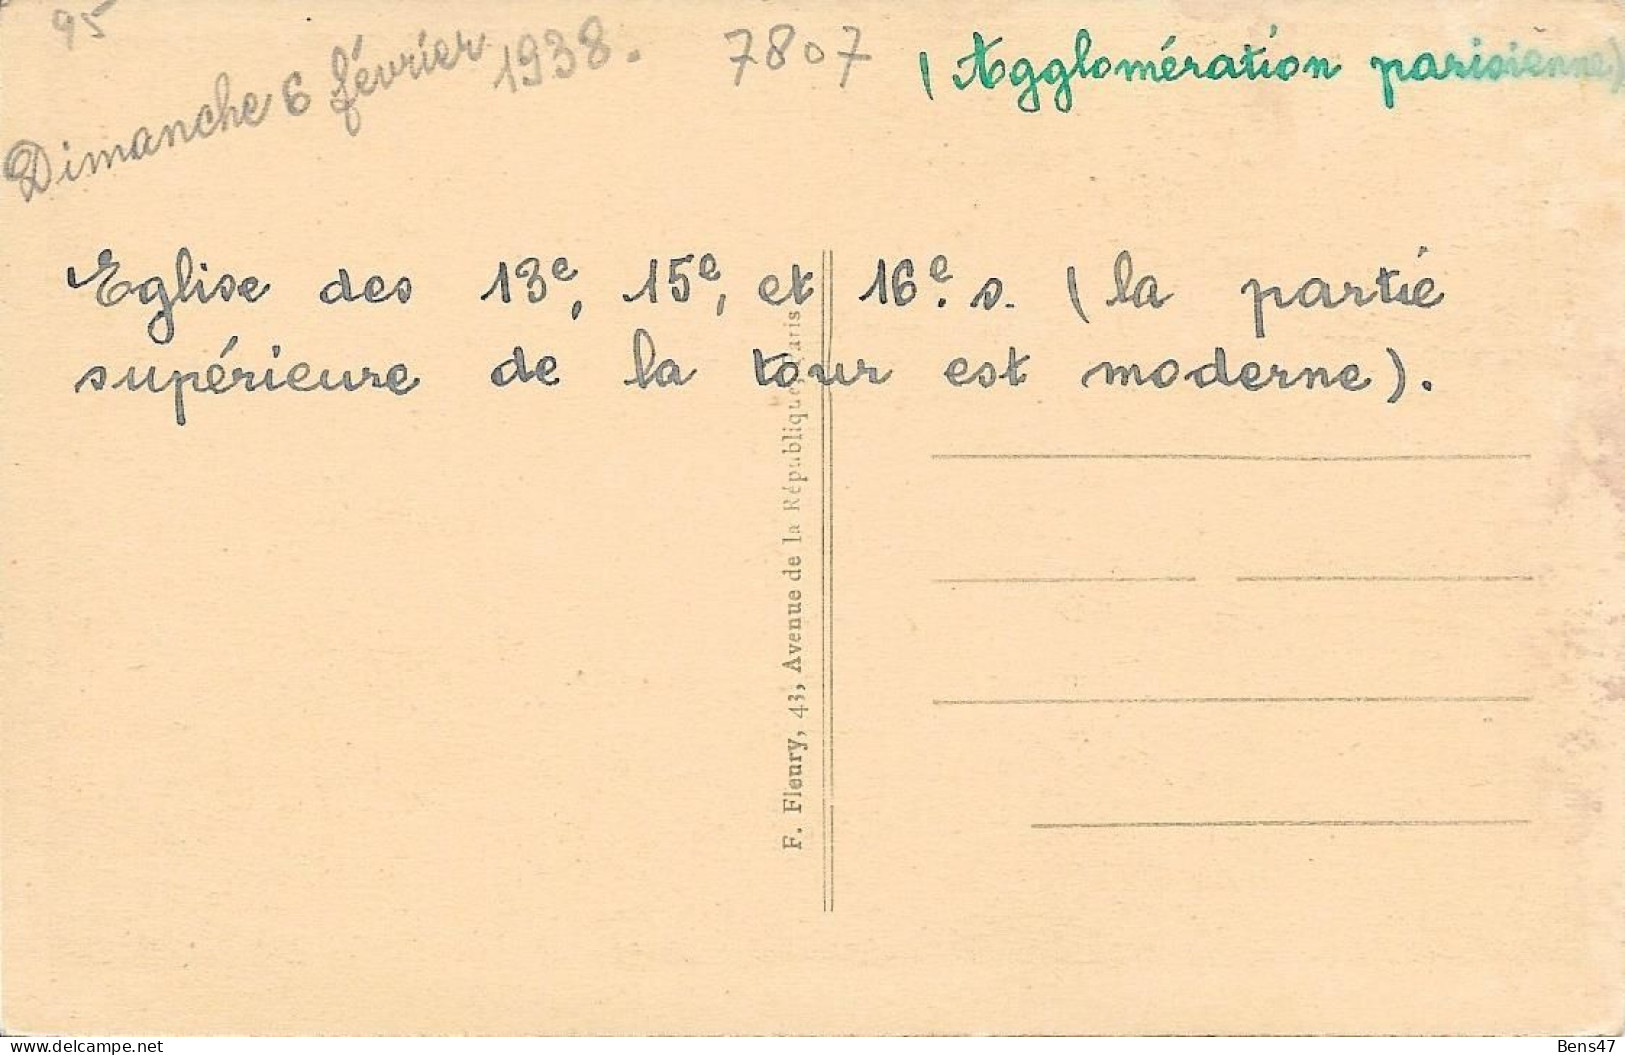 95
Dimanche 6 février 1938.
7807
(Agglomération parisienne)
Eglise des 13e, 15e, et 16e. s. (la partie
supérieure de la tour est moderne).
F. Fleury, 43, Avenue de la République, Paris
Bens47